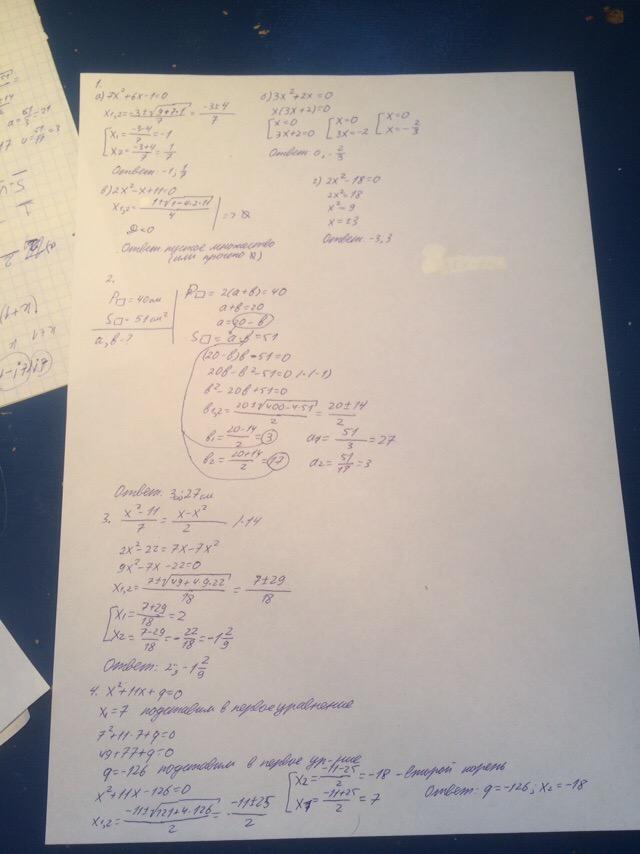 1.
а) 7x²+6x-1=0
x₁,₂=(-3±√(9+7·1))/7=(-3±4)/7
[x₁=(-3-4)/7=-1
[x₂=(-3+4)/7=1/7
Ответ: -1; 1/7
б) 3x²+2x=0
x(3x+2)=0
[x=0 [x=0 [x=0
[3x+2=0 [3x=-2 [x=-2/3
Ответ: 0, -2/3
в) 2x²-x+11=0
x₁,₂=(1±√(1-4·2·11))/4 | => ∅
D<0
Ответ: пустое множество
(или просто ∅)
г) 2x²-18=0
2x²=18
x²=9
x=±3
Ответ: -3, 3
2.
P□=40см
S□=51см²
a, b-?
P□=2(a+b)=40
a+b=20
a=20-b
S□=a·b=51
(20-b)b-51=0
20b-b²-51=0 /·(-1)
b²-20b+51=0
b₁,₂=(20±√(400-4·51))/2=(20±14)/2
b₁=(20-14)/2=3 a₁=51/3=27
b₂=(20+14)/2=17 a₂=51/17=3
Ответ: 3 и 27 см
3. (x²-11)/7=(x-x²)/2 /·14
2x²-22=7x-7x²
9x²-7x-22=0
x₁,₂=(7±√(49+4·9·22))/18=(7±29)/18
[x₁=(7+29)/18=2
[x₂=(7-29)/18=-22/18=-1 2/9
Ответ: 2; -1 2/9
4. x²+11x+q=0
x₁=7 подставим в первое уравнение
7²+11·7+q=0
49+77+q=0
q=-126 подставим в первое ур-ние
x²+11x-126=0
x₁,₂=(-11±√(121+4·126))/2=(-11±25)/2
[x₂=(-11-25)/2=-18 - второй корень
[x₁=(-11+25)/2=7
Ответ: q=-126; x₂=-18